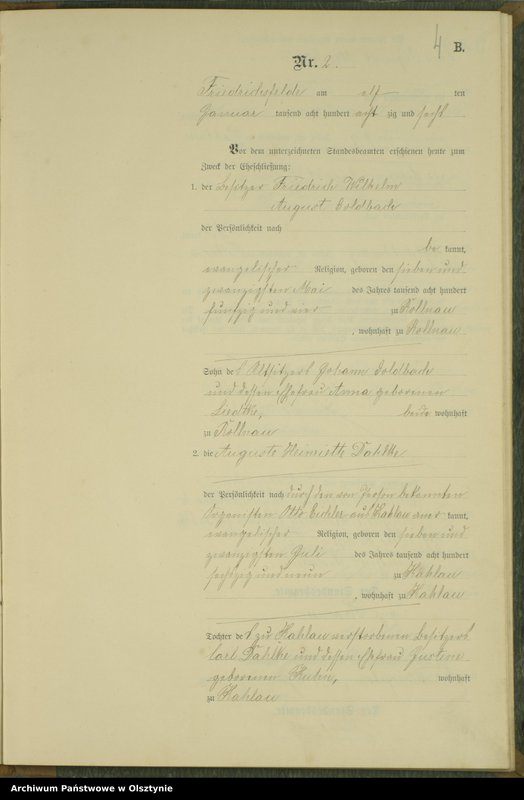 4 B.
Nr. 2.
Friedrichsfelde am elf ten
Januar tausend acht hundert acht zig und sechs
Vor dem unterzeichneten Standesbeamten erschienen heute zum
Zweck der Eheschließung:
1. der Besitzer Friedrich Wilhelm
August Goldbach
der Persönlichkeit nach
be kannt,
evangelischer Religion, geboren den sieben und
zwanzigsten Mai des Jahres tausend acht hundert
fünfzig und vier zu Kollnau
, wohnhaft zu Kollnau
Sohn des Altsitzers Johann Goldbach
und dessen Ehefrau Anna geborenen
Liedtke, beide wohnhaft
zu Kollnau
2. die Auguste Heinriette Dahlke
der Persönlichkeit nach durch den von Person bekannten
Organisten Otto aus Kahlau aner kannt,
evangelischer Religion, geboren den sieben und
zwanzigsten Juli des Jahres tausend acht hundert
sechszig und neun zu Kahlau
, wohnhaft zu Kahlau
Tochter des zu Kahlau verstorbenen Besitzers
Carl Dahlke und dessen Ehefrau Justine
geborenen Kuhn, wohnhaft
zu Kahlau
Archiwum Państwowe w Olsztynie